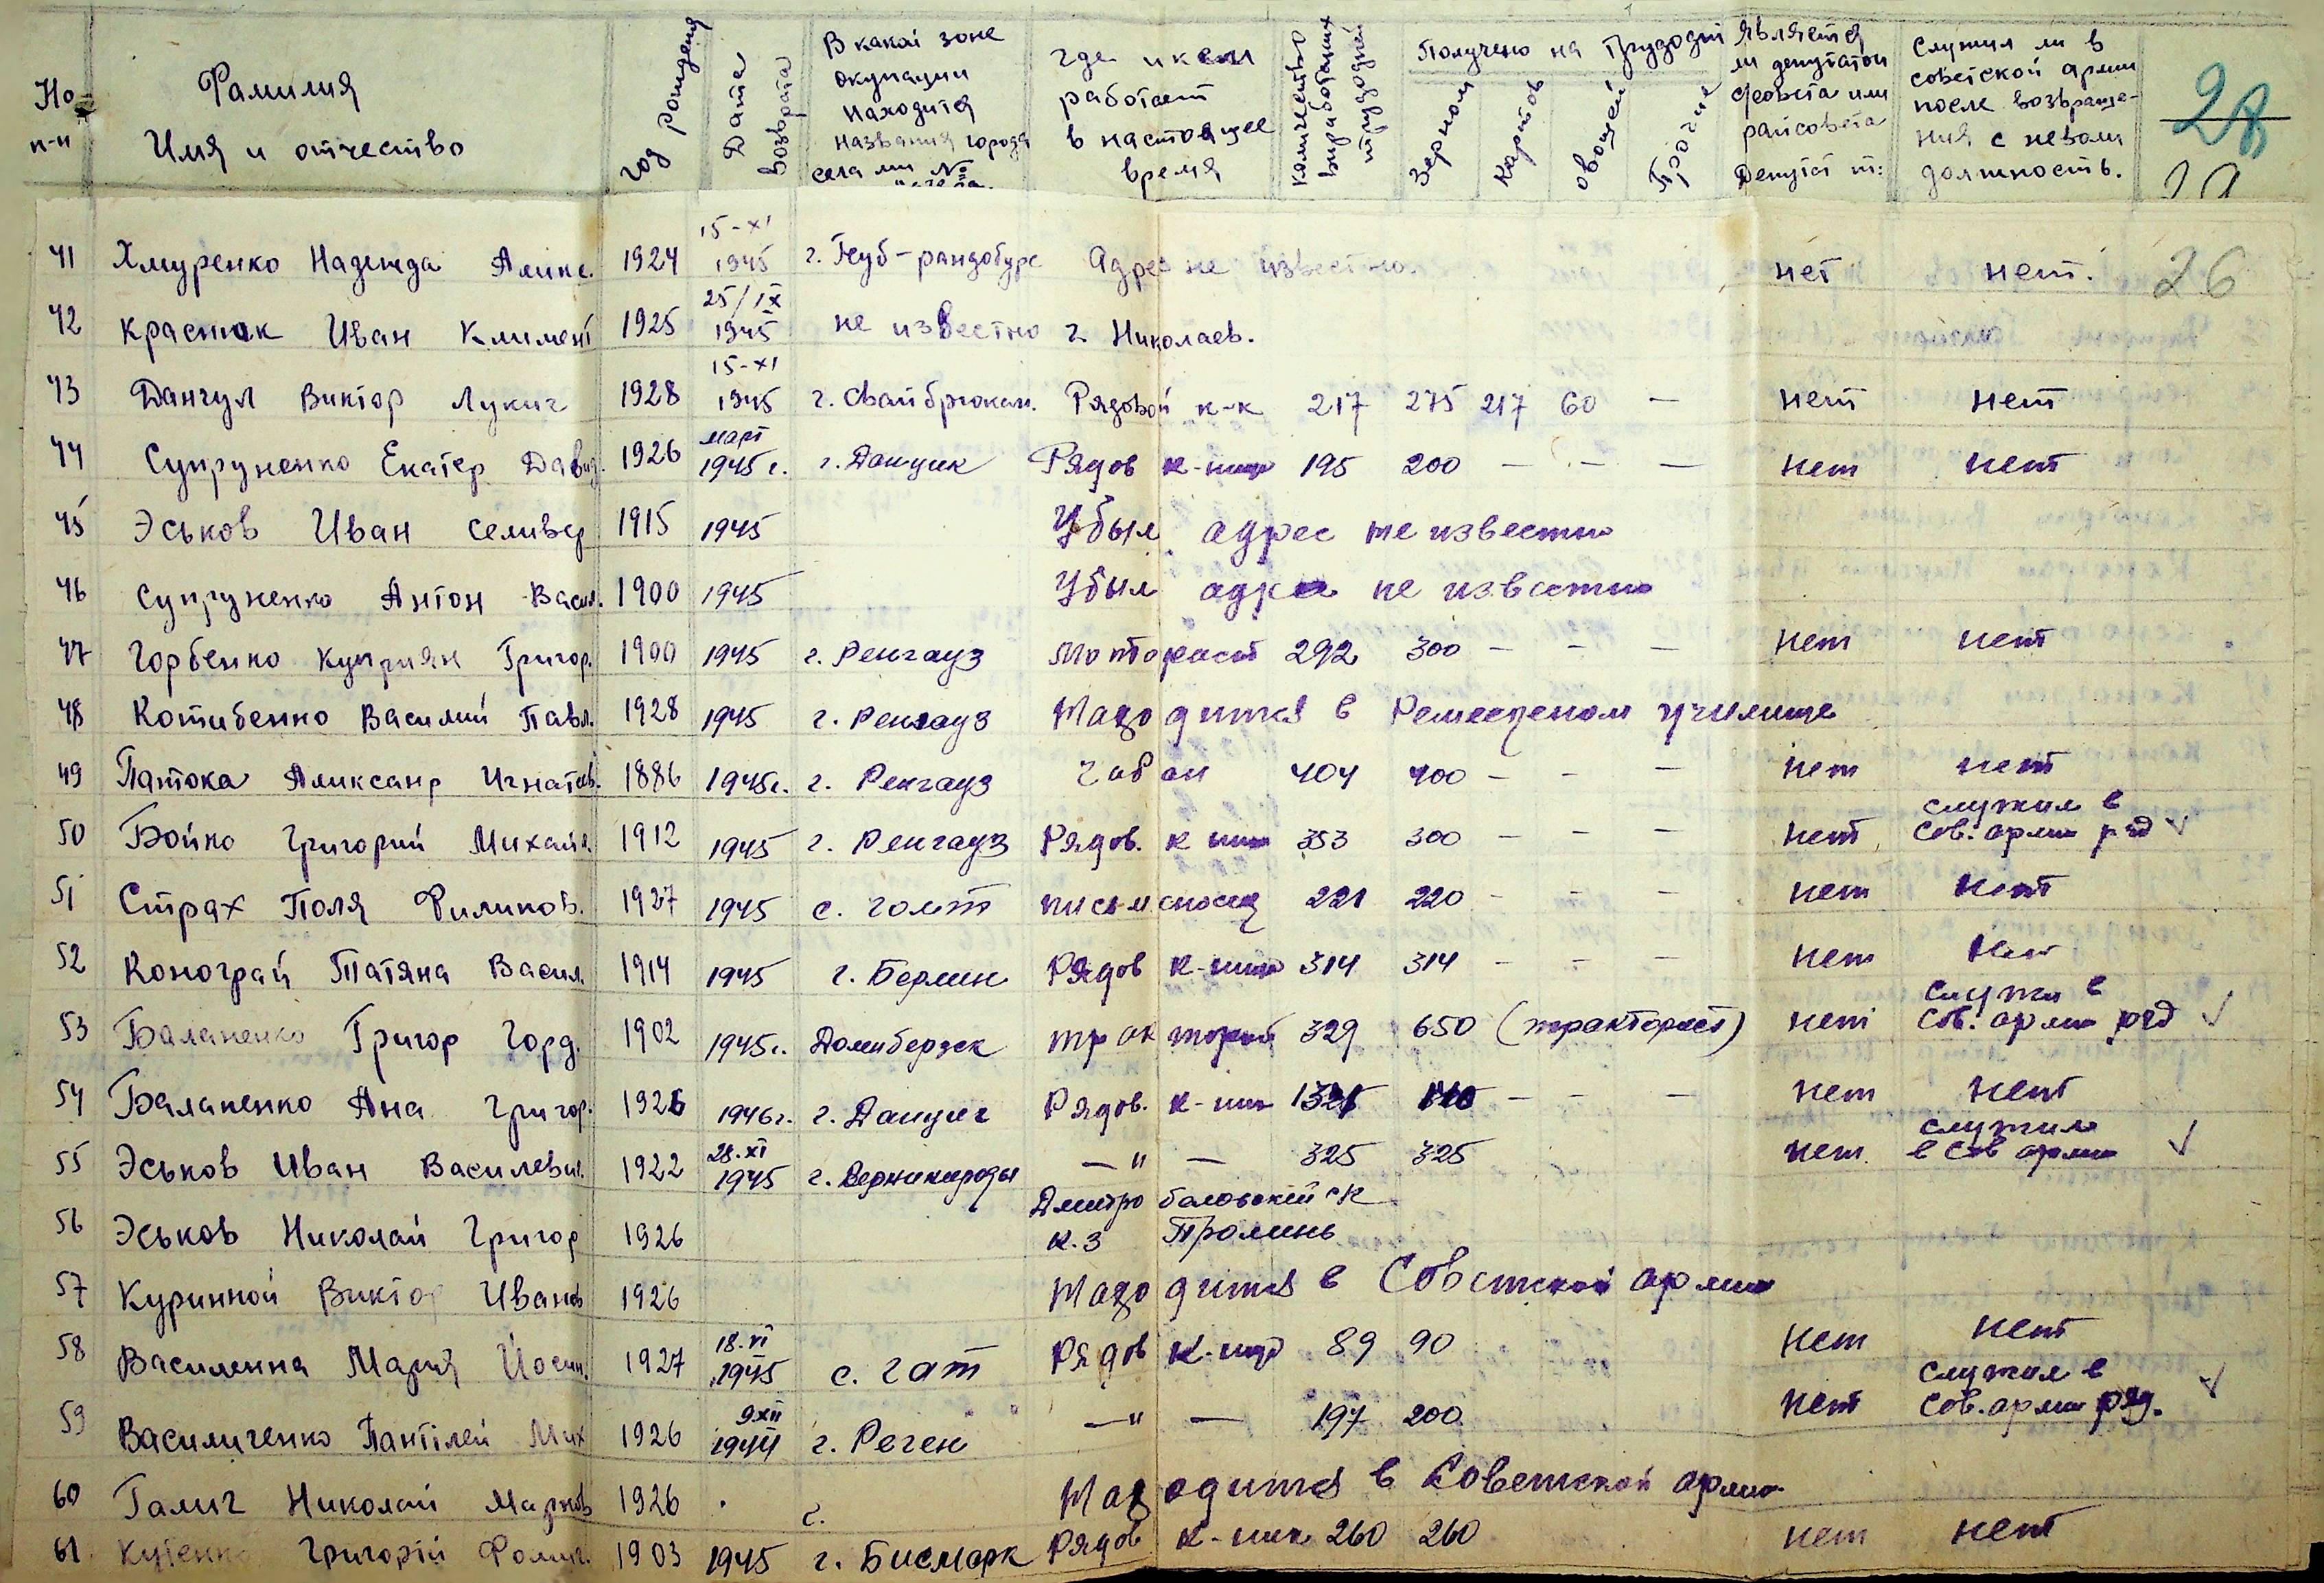 Но-п-н
Фамилия Имя и отчество
год рождения
Дата возврата
В какой зоне окупации находится названия города села или №
где и кем работает в настоящее время
количество выработаних трудодней
Получено на трудодни
Зерном
Картов
овощей
Прочие
Является ли депутатом Совета или райсовета Депутат т:
Служил ли в советской армии после возвращения с неволи должность.
28
41 Хмуренко Надежда Алике. 1924 15-XI 1945 Адрес не известно. нет нет. 26
42 Иван Климент 1925 25/IX 1945 не известно г. Николаев.
43 Данчул Виктор Лукич 1928 15-XI 1945 г. Свайбрюкан. Рядовой к-к 217 275 217 60 — нет нет
44 Супруненко Екатер Давид. 1926 март 1945 г. г. Данцик Рядов к-ник 195 200 — — — нет нет
45 Эськов Иван Селивер 1915 1945 Убыл адрес не известно
46 Супруненко Антон Васил. 1900 1945 Убыл адрес не известно
47 Горбенко Куприян Григор. 1900 1945 г. Ренгауз Моторист 292 300 — — — нет нет
48 Котибенко Василий Павл. 1928 1945 г. Ренгауз Находится в Ремесреном училище
49 Патока Аликсанр Игнатов. 1886 1945г. г. Ренгауз Чабан 404 400 — — — нет нет
50 Бойко Григорий Михайл 1912 1945 г. Ренгауз Рядов. к ник 353 300 — — — нет служил в Сов. арми ряд ✓
51 Страх Поля Филипов. 1927 1945 с. голт письмоносец 221 220 — — — нет нет
52 Конограй Татяна Васил. 1914 1945 г. Берлин Рядов к-ник 314 314 — — — нет нет
53 Балапенко Григор Горд. 1902 1945г. Доленберзек 329 650 (тракторист) нет служил в Сов. арми ряд ✓
54 Балапенко Ана Григор. 1926 1946г. г. Данциг Рядов. к-ник — — — нет нет
55 Эськов Иван Василевич. 1922 28.XI 1945 —"— 325 325 нет служил в Сов арми ✓
56 Эськов Николай Григор 1926 Дмитро баловский с/с к.з Проминь
57 Куринной Виктор Иванов 1926 Находится в Советской армии
58 Василенна Мария Йосип. 1927 18.VI 1945 с. гат Рядов к-ник 89 90 нет нет
59 Василиченко Пантілей Мих 1926 9XII 1944 г. Реген —"— 197 200 нет служил в Сов. арми ряд. ✓
60 Галич Николай Марков 1926 г. Находится в Советской армии
61 Куценко Григорій Фомич. 1903 1945 г. Бисмарк Рядов к-ник 260 260 нет нет